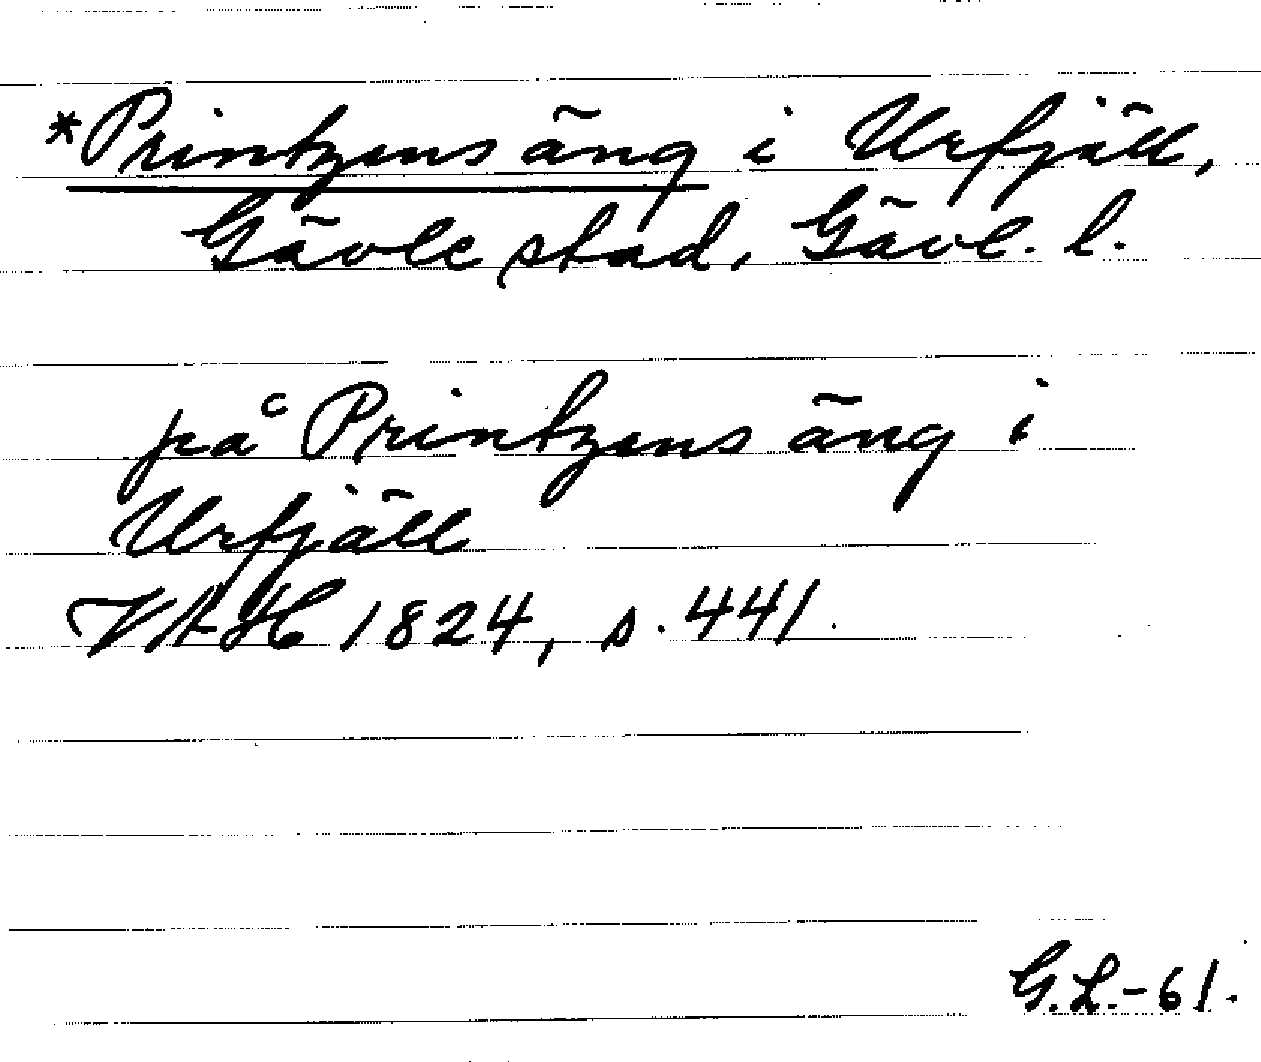 *Printzens äng i Urfjäll,
Gävle stad, Gävl. l.
på Printzens äng i
Urfjäll
VAH 1824, s. 441.
G.L.-61.